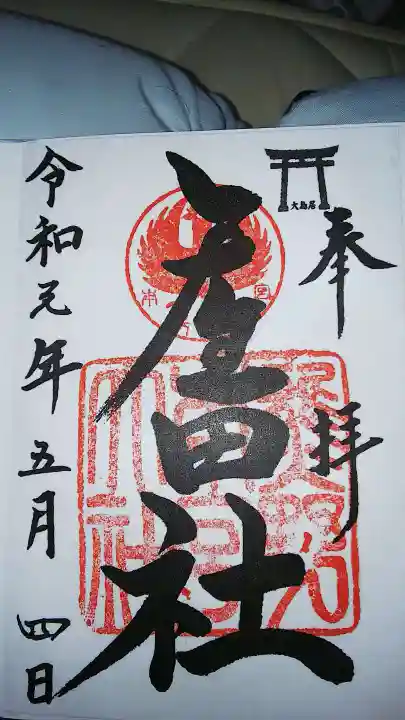 大鳥居
奉拝
産田社
令和元年五月四日